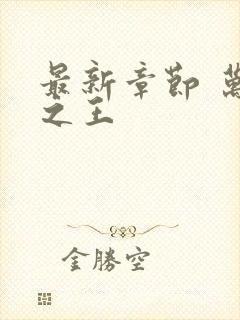 最新章節 萬
之王
金勝空